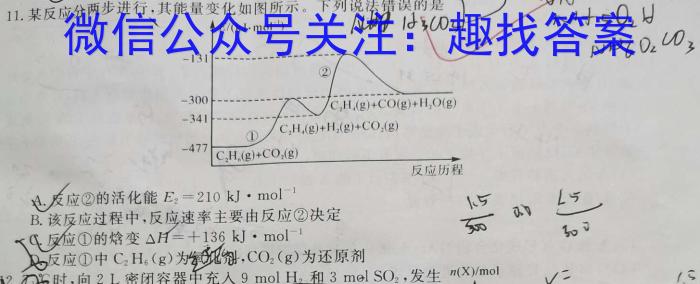 11.某反应分两步进行,其能量变化如图所示。下列说法错误的是
微信公众号关注：趣找答案
-131
②
-300
C₂H₄(g)+CO(g)+H₂O(g)
-341
C₂H₄(g)+H₂(g)+CO₂(g)
①
-477
C₂H₆(g)+CO₂(g)
反应历程
A.反应②的活化能 E₂=210 kJ·mol⁻¹
B.该反应过程中,反应速率主要由反应②决定
C.反应①的焓变 ΔH=+136 kJ·mol⁻¹
D.反应①中 C₂H₆(g)为氧化剂,CO₂(g)为还原剂
时,向 2 L 密闭容器中充入 9 mol H₂ 和 3 mol SO₂,发生 n(X)/mol